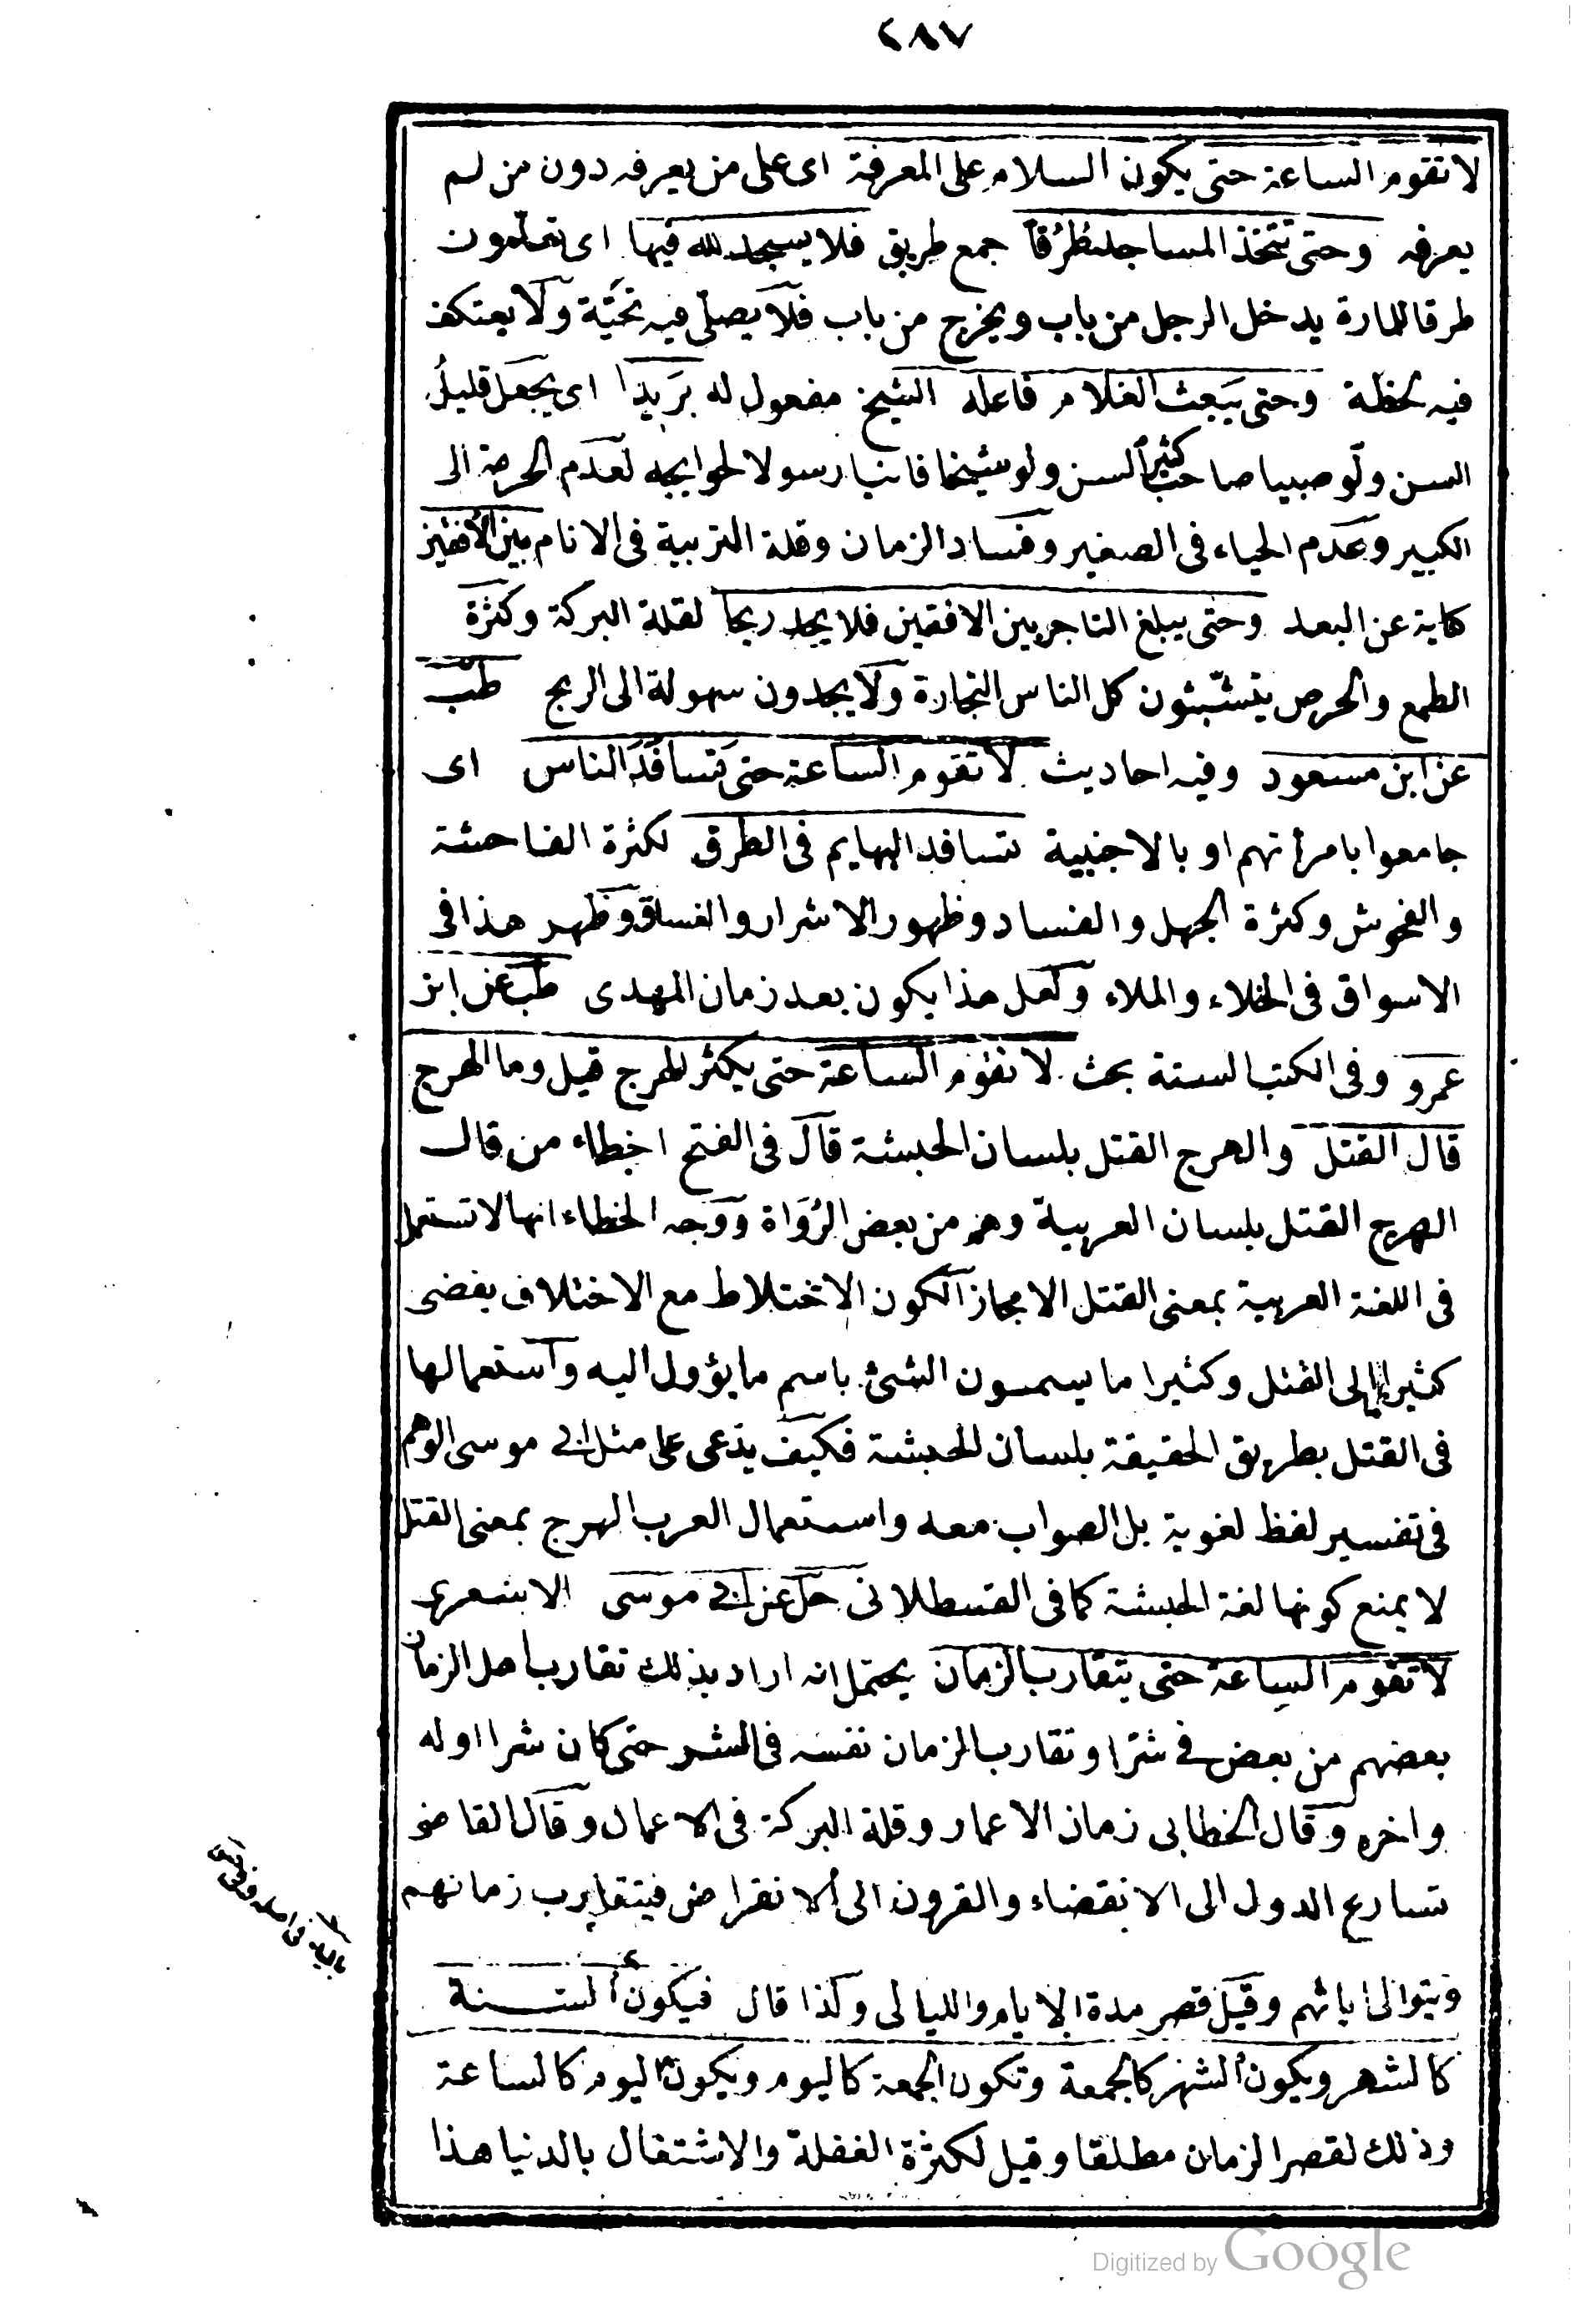 ٤٨٧
لا تقوم الساعة حتى يكون السلام على المعرفة اى على من يعرفه دون من لم
يعرفه وحتى تتخذ المساجد طُرُقاً جمع طريق فلا يسجد لله فيها اى
طرقا للمارة يدخل الرجل من باب ويخرج من باب فلا يصلى فيه تحيّة ولا يعتكف
فيه لحظة وحتى يَبعث الغلام فاعله الشيخ مفعول له بَريدا اى يجعل قليل
السن ولو صبيا صاحب كثير السن ولو شيخا فانيا رسولا لحوايجه لعدم الحرمة الى
الكبير وعدم الحياء فى الصغير وفساد الزمان وقلة التربية فى الانام بين الأفقين
كناية عن البعد وحتى يبلغ التاجر بين الافقين فلا يجد ربحا لقلة البركة وكثرة
الطمع والحرص يتشبّثون كل الناس التجارة ولا يجدون سهولة الى الربح طب
عن ابن مسعود وفيه احاديث لا تقوم الساعة حتى تَتسافَدَ الناس اى
جامعوا بامرأتهم او بالاجنبية تتسافد البهايم فى الطرق لكثرة الفاحشة
والفحوش وكثرة الجهل والفساد وظهور الاشرار والفساق وظهر هذا فى
الاسواق فى الخلاء والملاء ولعل هذا يكون بعد زمان المهدى طب عن ابن
عمرو وفى الكتب الستة بحث لا تقوم الساعة حتى يكثر الهرج قيل وما الهرج
قال القتل والهرج القتل بلسان الحبشة قال فى الفتح اخطاء من قال
الهرج القتل بلسان العربية وهم من بعض الرُوَاة ووجه الخطاء انها لا تستعمل
فى اللغة العربية بمعنى القتل الا مجازا لكون الاختلاط مع الاختلاف يفضى
كثيرا الى القتل وكثيرا ما يسمون الشئ باسم ما يؤول اليه واستعمالها
فى القتل بطريق الحقيقة بلسان الحبشة فكيف يدّعى على مثل ابى موسى الوهم
فى تفسير لفظ لغوية بل الصواب معه واستعمال العرب الهرج بمعنى القتل
لا يمنع كونها لغة الحبشة كما فى القسطلانى حل عن ابى موسى الاشعرى
لا تقوم الساعة حتى يتقارب الزمان يحتمل انه اراد بذلك تقارب اهل الزمان
بعضهم من بعض فى شرّ او تقارب الزمان نفسه فى الشر حتى كان شرا اوله
واخره وقال الخطابى زمان الاعمار وقلة البركة فى الاعمال وقال القاضى
تسارع الدول الى الانقضاء والقرون الى الانقراض فيتقارب زمانهم
ويتوالى اياتهم وقيل قصر مدة الايام والليالى وكذا قال فيكون السنة
كالشهر ويكون الشهر كالجمعة وتكون الجمعة كاليوم ويكون اليوم كالساعة
وذلك لقصر الزمان مطلقا وقيل لكثرة الغفلة والاشتغال بالدنيا هذا
Digitized by Google